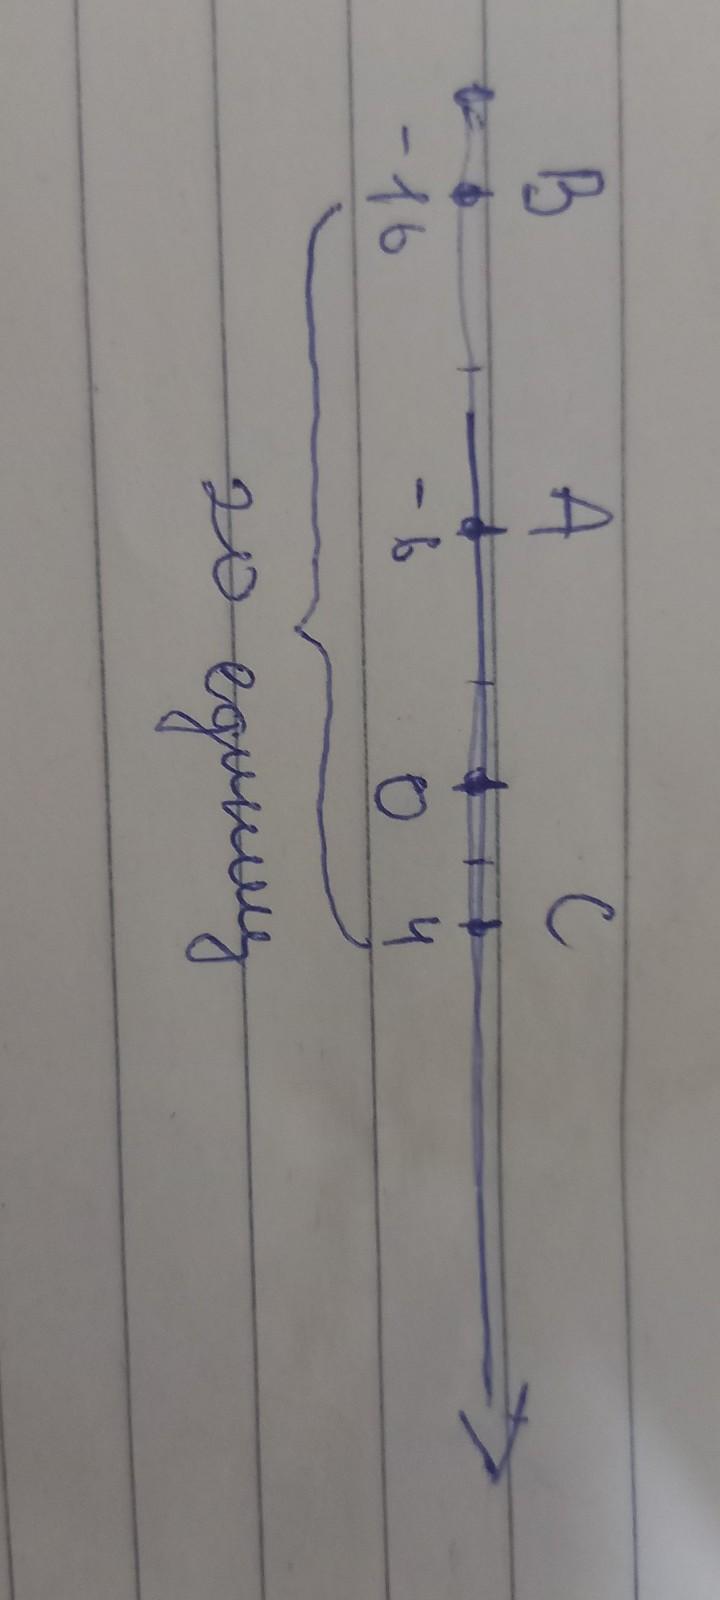 B A C
-16 -6 0 4
20 единиц